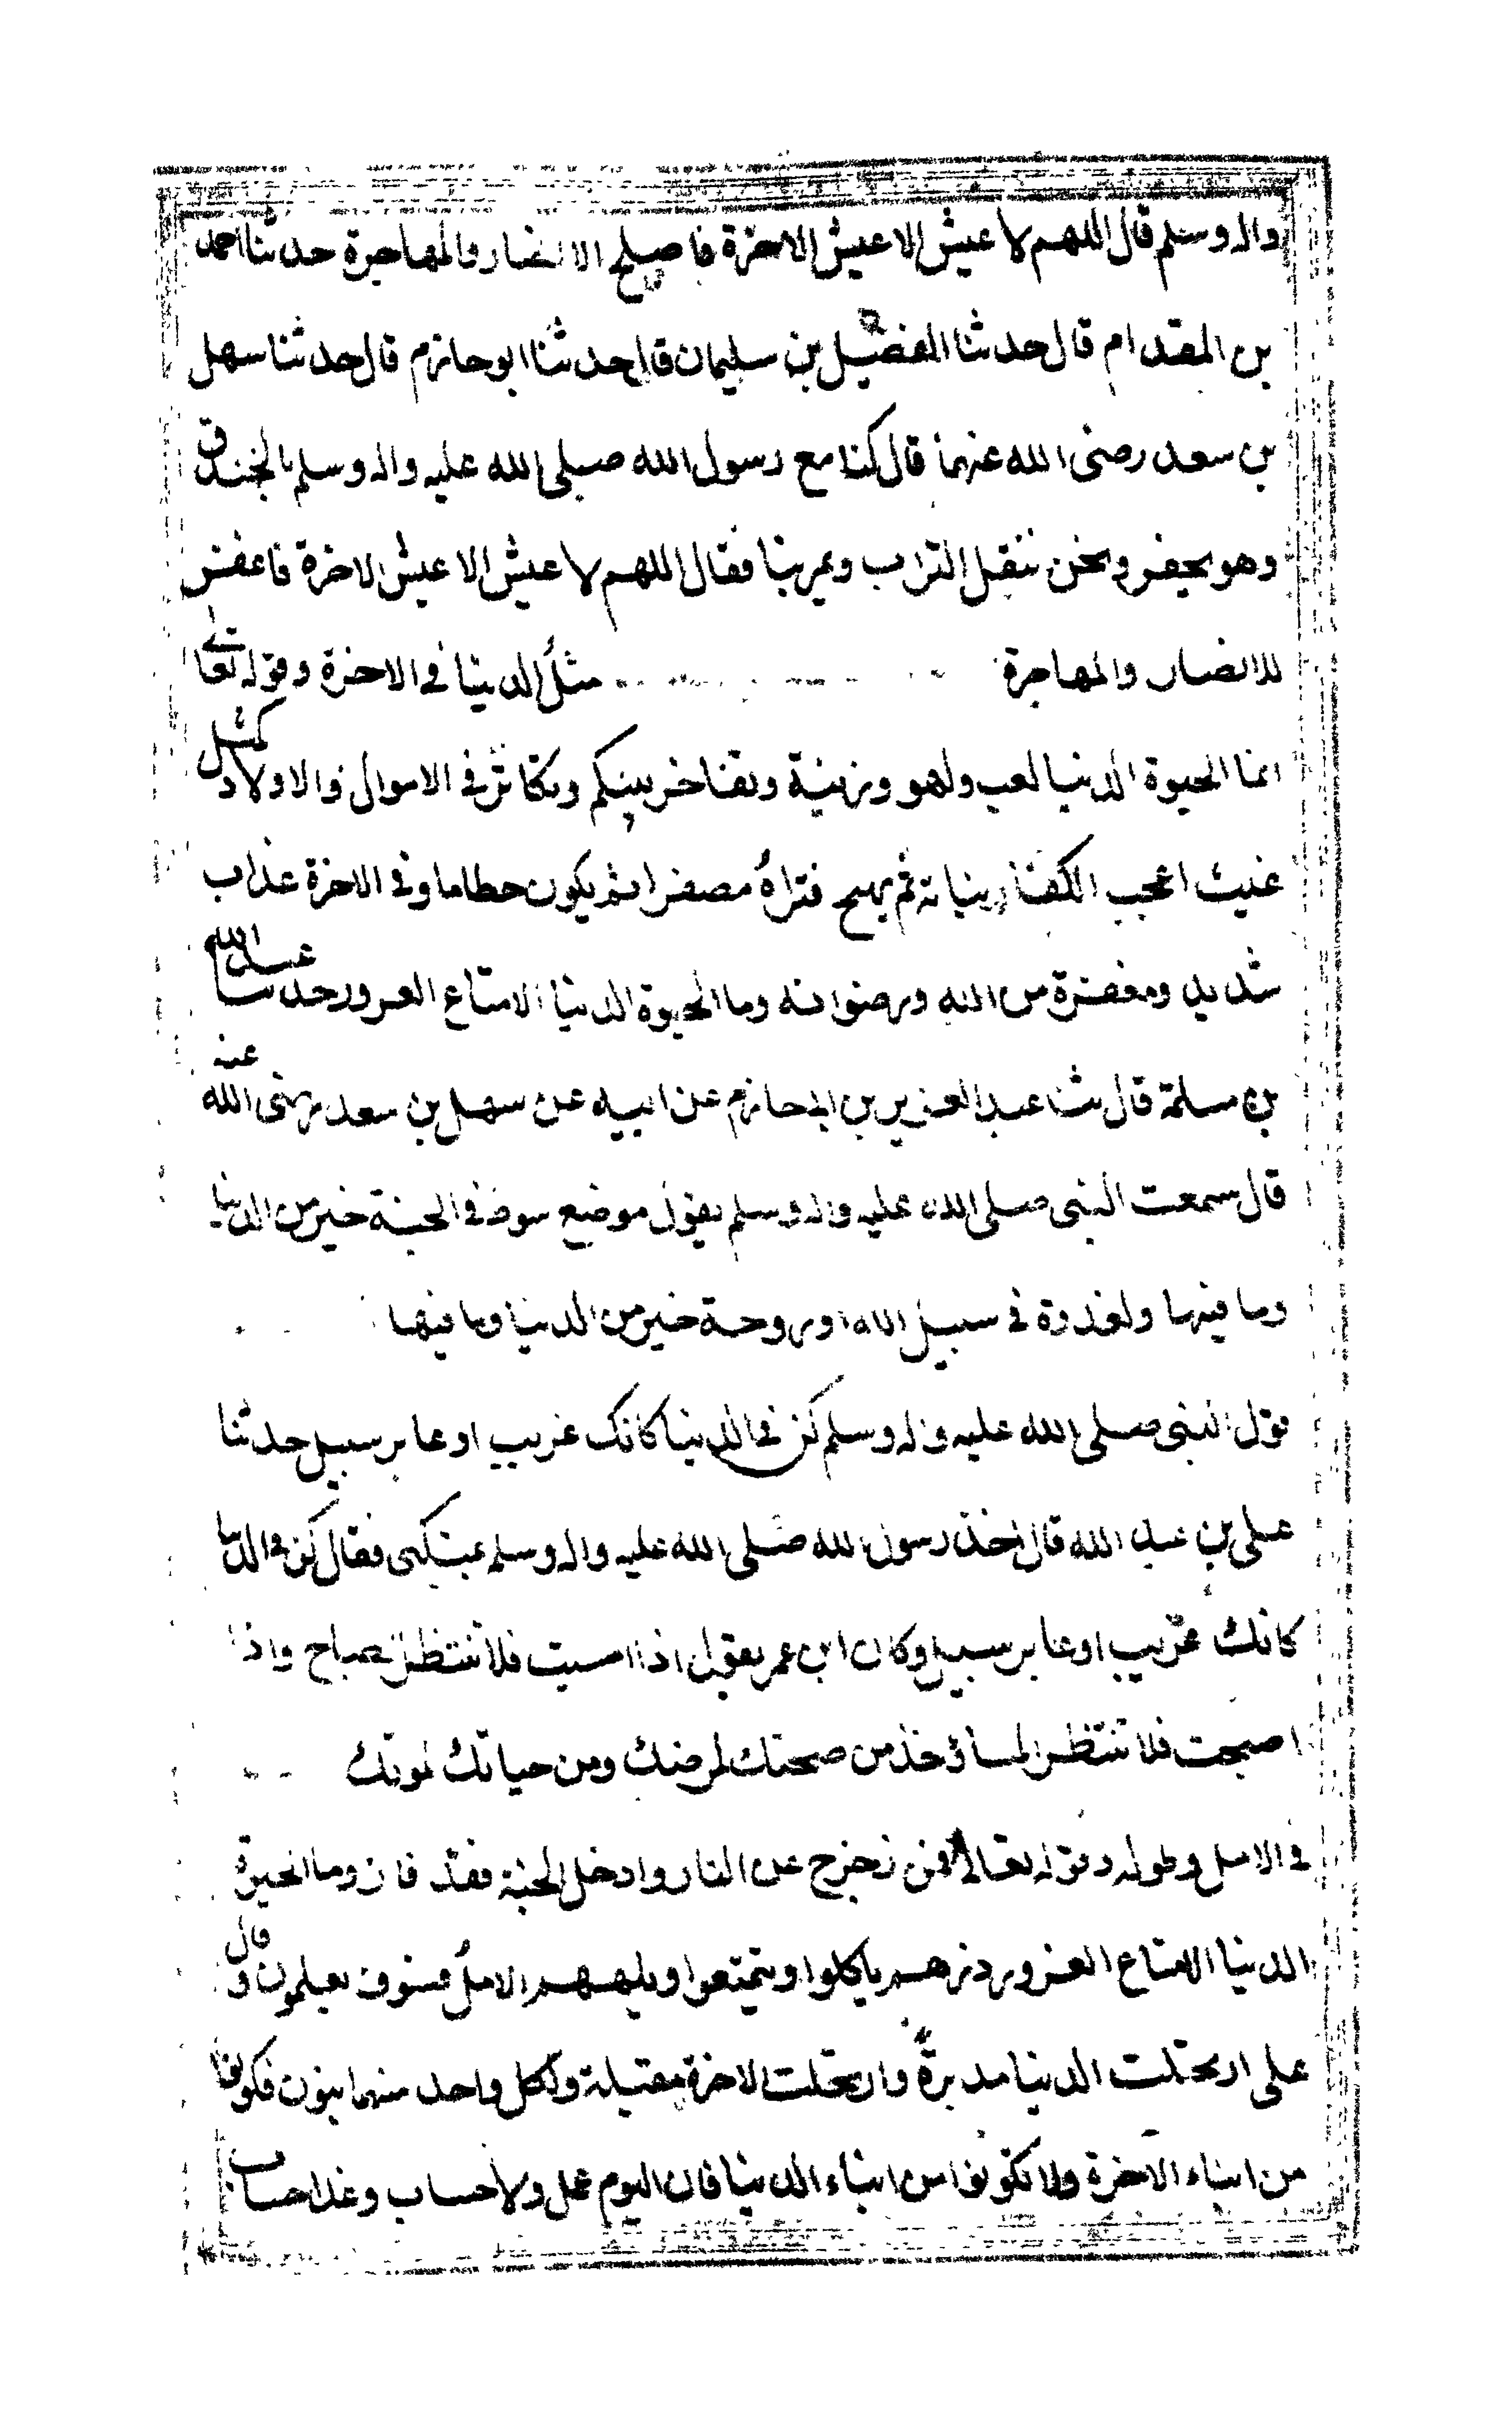 واله وسلم قال اللهم لا عيش الا عيش الاخرة فاصلح الانصار والمهاجرة حدثنا احمد
بن المقدام قال حدثنا الفضيل بن سليمان قال حدثنا ابو حازم قال حدثنا سهل
بن سعد رضى الله عنهما قال كنا مع رسول الله صلى الله عليه واله وسلم بالخندق
وهو يحفر ونحن ننقل التراب ويمر بنا فقال اللهم لا عيش الا عيش الاخرة فاغفر
للانصار والمهاجرة مثل الدنيا فى الاخرة وقوله تعالى
انما الحيوة الدنيا لعب ولهو وزينة وتفاخر بينكم وتكاثر فى الاموال والاولاد كمثل
غيث اعجب الكفار نباته ثم يهيج فتراه مصفرا ثم يكون حطاما وفى الاخرة عذاب
شديد ومغفرة من الله ورضوانه وما الحيوة الدنيا الا متاع الغرور حدثنا عبد الله
بن مسلمة قال ثنا عبد العزيز بن ابى حازم عن ابيه عن سهل بن سعد رضى الله عنه
قال سمعت النبى صلى الله عليه واله وسلم يقول موضع سوط فى الجنة خير من الدنيا
وما فيها ولغدوة فى سبيل الله او روحة خير من الدنيا وما فيها
قول النبى صلى الله عليه واله وسلم كن فى الدنيا كانك غريب او عابر سبيل حدثنا
على بن عبد الله قال اخذ رسول الله صلى الله عليه واله وسلم بمنكبى فقال كن فى الدنيا
كانك غريب او عابر سبيل وكان ابن عمر يقول اذا امسيت فلا تنتظر الصباح واذا
اصبحت فلا تنتظر المساء وخذ من صحتك لمرضك ومن حياتك لموتك
فى الامل وطوله وقوله تعالى فمن زحزح عن النار وادخل الجنة فقد فاز وما الحيوة
الدنيا الا متاع الغرور ذرهم ياكلوا ويتمتعوا ويلههم الامل فسوف يعلمون وقال
على ارتحلت الدنيا مدبرة وارتحلت الاخرة مقبلة ولكل واحد منهما بنون فكونوا
من ابناء الاخرة ولا تكونوا من ابناء الدنيا فان اليوم عمل ولا حساب وغدا حساب